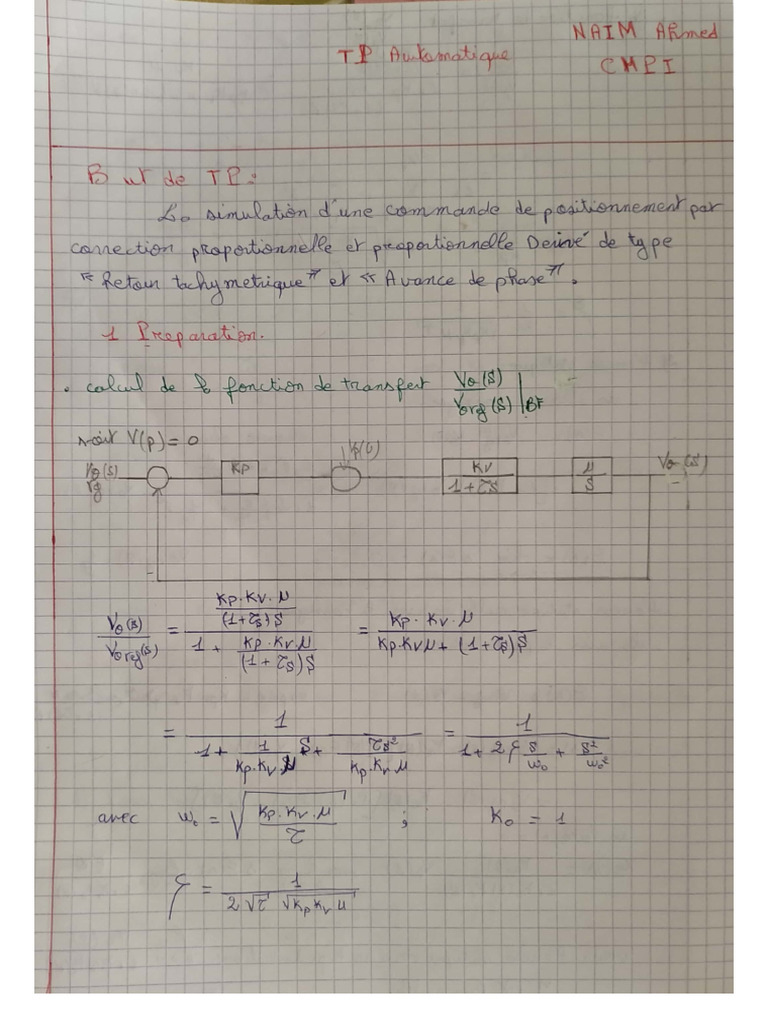 NAIM Ahmed
TP Automatique
CMPI
But de TP:
La simulation d'une commande de positionnement par
correction proportionnelle et proportionnelle Derivé de type
"Retour tachymetrique" et « Avance de phase".
1 Preparation.
• calcul de la fonction de transfert Vθ(S)/Vθref(S) | BF
soit V(p) = 0
Kp
Kv/(1+τS)
μ/S
Vθ(S)
-
Vθ(s)/Vθref(s) = (Kp·Kv·μ/((1+τS)S))/(1 + Kp·Kv·μ/((1+τS)S)) = Kp·Kv·μ/(Kp·Kvμ + (1+τS)S)
= 1/(1 + 1/(Kp·Kv·μ) S + τS²/(Kp·Kv·μ)) = 1/(1 + 2ξ S/w₀ + S²/w₀²)
avec w₀ = √(Kp·Kv·μ/τ) ; K₀ = 1
ξ = 1/(2√τ √KpKvμ)